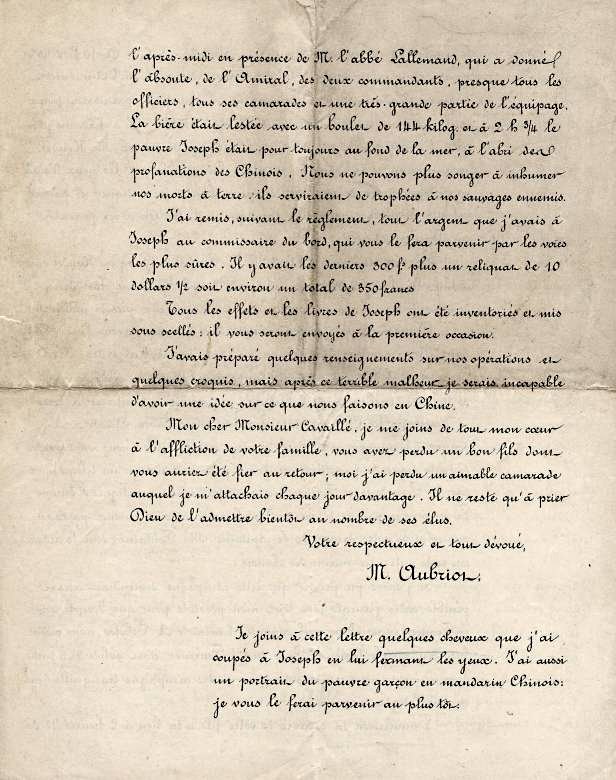 l'après-midi en présence de M. l'abbé Lallemand, qui a donné
l'absoute, de l'Amiral, des deux commandants, presque tous les
officiers, tous ses camarades et une très-grande partie de l'équipage.
La bière était lestée avec un boulet de 144 kilog. et à 2 h 3/4 le
pauvre Joseph était pour toujours au fond de la mer, à l'abri des
profanations des Chinois. Nous ne pouvons plus songer à inhumer
nos morts à terre : ils serviraient de trophées à nos sauvages ennemis.
J'ai remis, suivant le règlement, tout l'argent que j'avais à
Joseph au commissaire du bord, qui vous le fera parvenir par les voies
les plus sûres. Il y avait les derniers 300 fs plus un reliquat de 10
dollars 1/2 soit environ un total de 350 francs
Tous les effets et les livres de Joseph ont été inventoriés et mis
sous scellés : il vous seront envoyés à la première occasion.
J'avais préparé quelques renseignements sur nos opérations et
quelques croquis, mais après ce terrible malheur je serais incapable
d'avoir une idée sur ce que nous faisons en Chine.
Mon cher Monsieur Cavaillé, je me joins de tout mon cœur
à l'affliction de votre famille, vous avez perdu un bon fils dont
vous auriez été fier au retour ; moi j'ai perdu un aimable camarade
auquel je m'attachais chaque jour davantage. Il ne reste qu'à prier
Dieu de l'admettre bientôt au nombre de ses élus.
Votre respectueux et tout dévoué,
M. Aubriot.
Je joins à cette lettre quelques cheveux que j'ai
coupés à Joseph en lui fermant les yeux. J'ai aussi
un portrait du pauvre garçon en mandarin Chinois :
je vous le ferai parvenir au plus tôt.